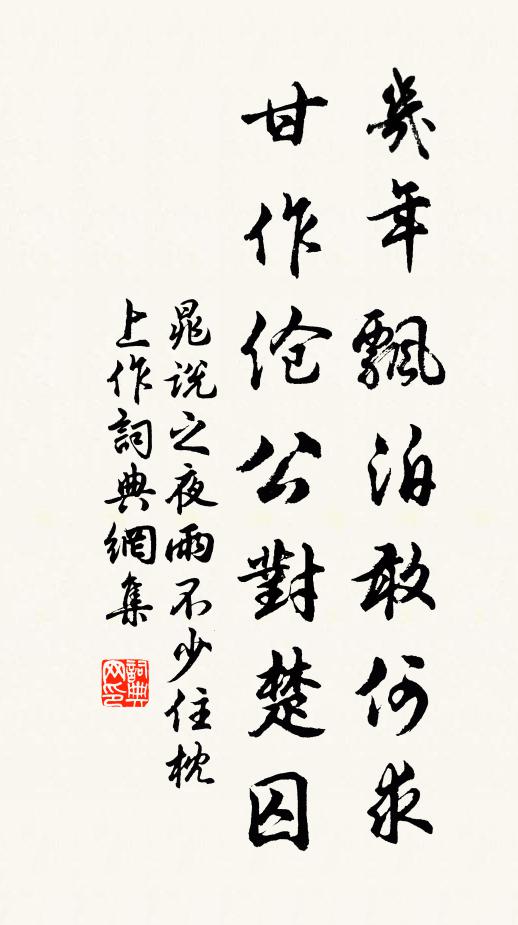 幾年飄泊敢何求
甘作傖公對楚囚
晁說之夜雨不少住枕
上作詞典網集
詞典
网印